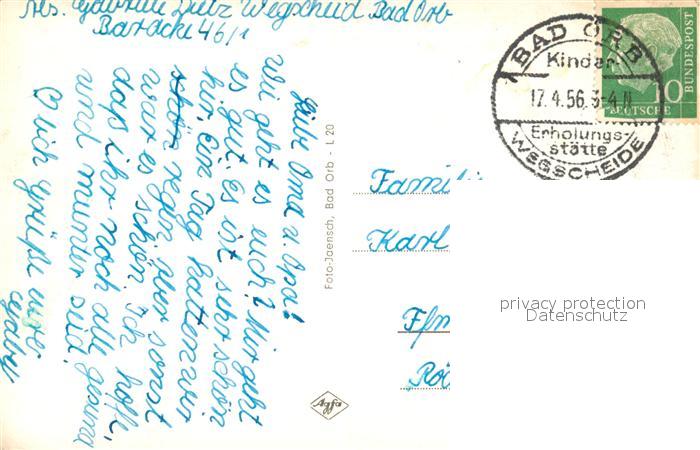 Abs. Gabriele Dietz Wegscheid Bad Orb
Baracke 46/1
Liebe Oma u. Opa!
Wie geht es euch? Mir geht
es gut. Es ist sehr schön
hir. Ein Tag hatten wir
schön regen aber sonst
war es schön. Ich hoffe,
daß ihr noch all gesund
und munter sind.
Es grüßt eure
Gaby
Foto-Jaensch, Bad Orb - L 20
Agfa
BAD ORB
Kinder-
17.4.56.
Erholungs-
stätte
WEGSCHEIDE
10
DEUTSCHE
BUNDESPOST
Famili
Karl
Ffm
privacy protection
Datenschutz